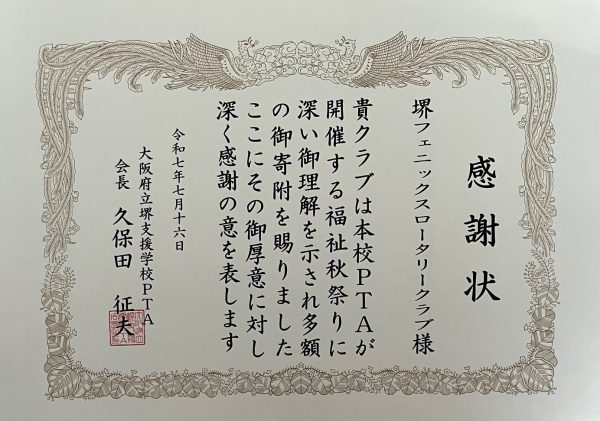 感謝状
堺フェニックスロータリークラブ様
貴クラブは本校PTAが
開催する福祉秋祭りに
深い御理解を示され多額
の御寄附を賜りました
ここにその御厚意に対し
深く感謝の意を表します
令和七年七月十六日
大阪府立堺支援学校PTA
会長 久保田 征夫